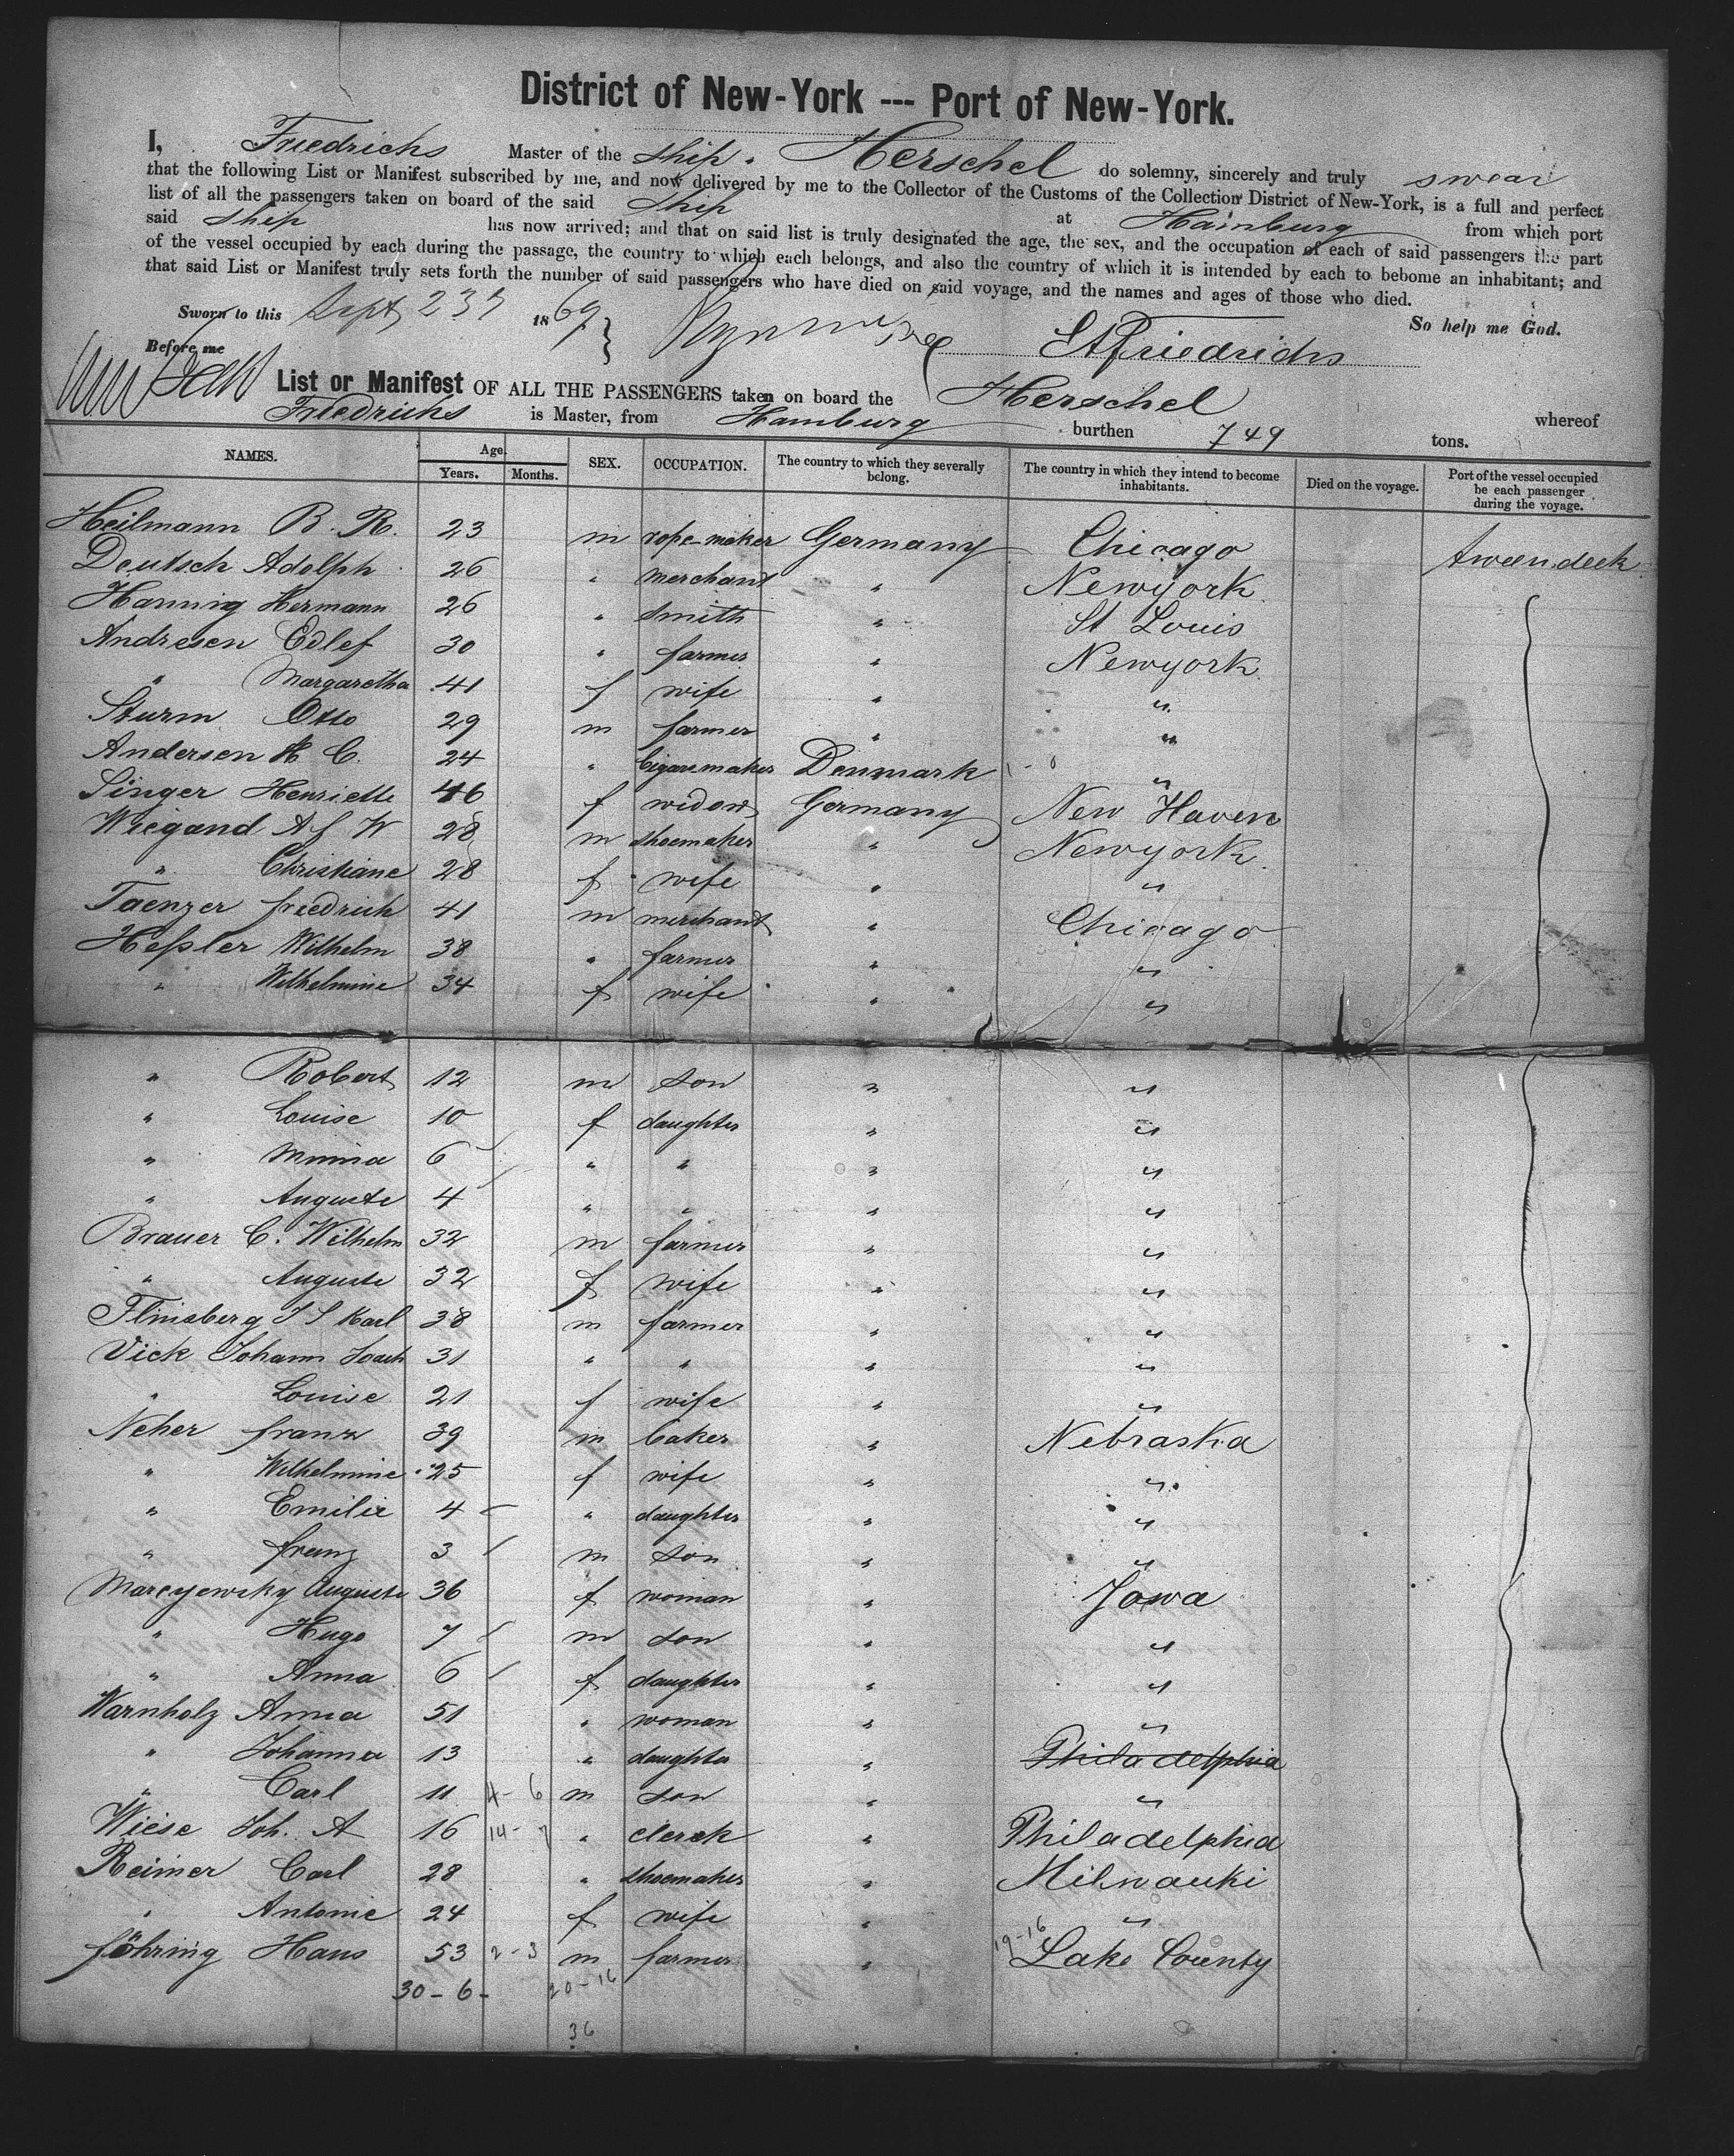 District of New-York --- Port of New-York.
I, Friedrichs Master of the ship Herschel do solemny, sincerely and truly swear
that the following List or Manifest subscribed by me, and now delivered by me to the Collector of the Customs of the Collection District of New-York, is a full and perfect
list of all the passengers taken on board of the said ship at Hamburg from which port
said ship has now arrived; and that on said list is truly designated the age, the sex, and the occupation of each of said passengers the part
of the vessel occupied by each during the passage, the country to which each belongs, and also the country of which it is intended by each to bebome an inhabitant; and
that said List or Manifest truly sets forth the number of said passengers who have died on said voyage, and the names and ages of those who died.
Sworn to this Sept 23 1869 So help me God.
Before me Friedrichs
List or Manifest OF ALL THE PASSENGERS taken on board the Herschel whereof
Friedrichs is Master, from Hamburg burthen 749 tons.
NAMES. Age. Years. Months. SEX. OCCUPATION. The country to which they severally belong. The country in which they intend to become inhabitants. Died on the voyage. Port of the vessel occupied be each passenger during the voyage.
Heilmann B. R. 23 m rope-maker Germany Chicago tweendeck
Deutsch Adolph 26 " merchant " Newyork
Hannig Hermann 26 " smith " St Louis
Andresen Edlef 30 " farmer " Newyork
" Margaretha 41 f wife " "
Sturm Otto 29 m farmer " "
Andersen H C. 24 " Cigaremaker Denmark "
Singer Henriette 46 f widow Germany New Haven
Wiegand A f W 28 m shoemaker " Newyork
" Christiane 28 f wife " "
Taenzer friedrich 41 m merchant " Chicago
Heſsler Wilhelm 38 " farmer " "
" Wilhelmine 34 f wife " "
" Robert 12 m son " "
" Louise 10 f daughter " "
" Minna 6 " " " "
" Auguste 4 " " " "
Brauer C. Wilhelm 32 m farmer " "
" Auguste 32 f wife " "
Flinsberg J S Karl 38 m farmer " "
Vick Johann Joach 31 " " " "
" Louise 21 f wife " "
Neher franz 39 m baker " Nebraska
" Wilhelmine 25 f wife " "
" Emilie 4 " daughter " "
" franz 3 m son " "
Marcyewsky Auguste 36 f woman " Jowa
" Hugo 7 m son " "
" Anna 6 f daughter " "
Warnholz Anna 51 " woman " "
" Johanna 13 " daughter " Philadelphia
" Carl 11 4-6 m son " "
Wiese Joh. A 16 14-7 " clerck " Philadelphia
Reimer Carl 28 " shoemaker " Milwauki
" Antonie 24 f wife " "
föhring Hans 53 2-3 m farmer " 19-16 Lake County
30-6- 20-16
36